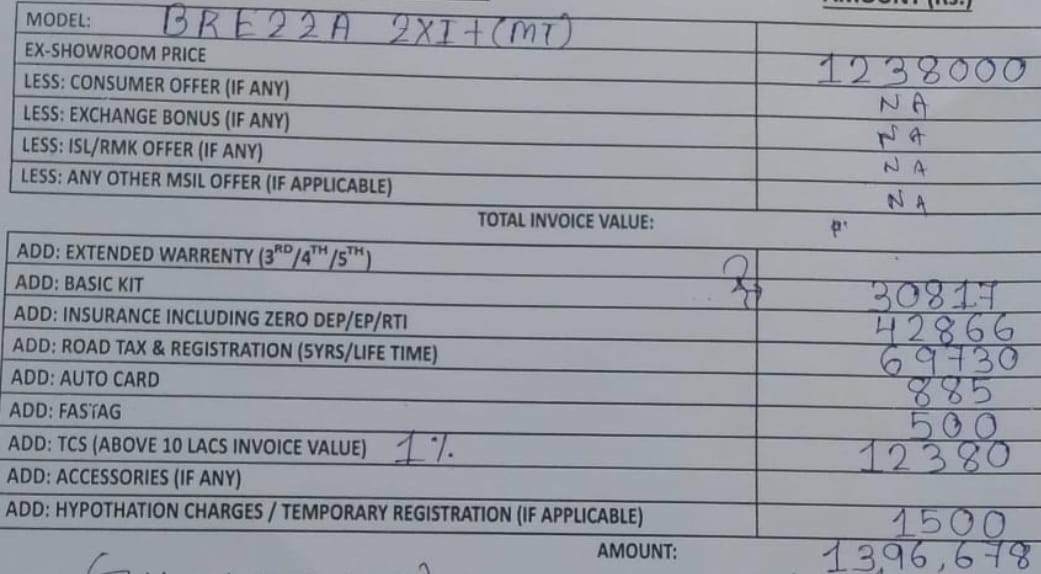 MODEL: BREZZA ZXI+(MT)
EX-SHOWROOM PRICE 1238000
LESS: CONSUMER OFFER (IF ANY) NA
LESS: EXCHANGE BONUS (IF ANY) NA
LESS: ISL/RMK OFFER (IF ANY) NA
LESS: ANY OTHER MSIL OFFER (IF APPLICABLE) NA
TOTAL INVOICE VALUE:
ADD: EXTENDED WARRENTY (3RD/4TH/5TH)
ADD: BASIC KIT 30817
ADD: INSURANCE INCLUDING ZERO DEP/EP/RTI 42866
ADD: ROAD TAX & REGISTRATION (5YRS/LIFE TIME) 69730
ADD: AUTO CARD 885
ADD: FASTAG 500
ADD: TCS (ABOVE 10 LACS INVOICE VALUE) 1% 12380
ADD: ACCESSORIES (IF ANY)
ADD: HYPOTHATION CHARGES / TEMPORARY REGISTRATION (IF APPLICABLE) 1500
AMOUNT: 13,96,678